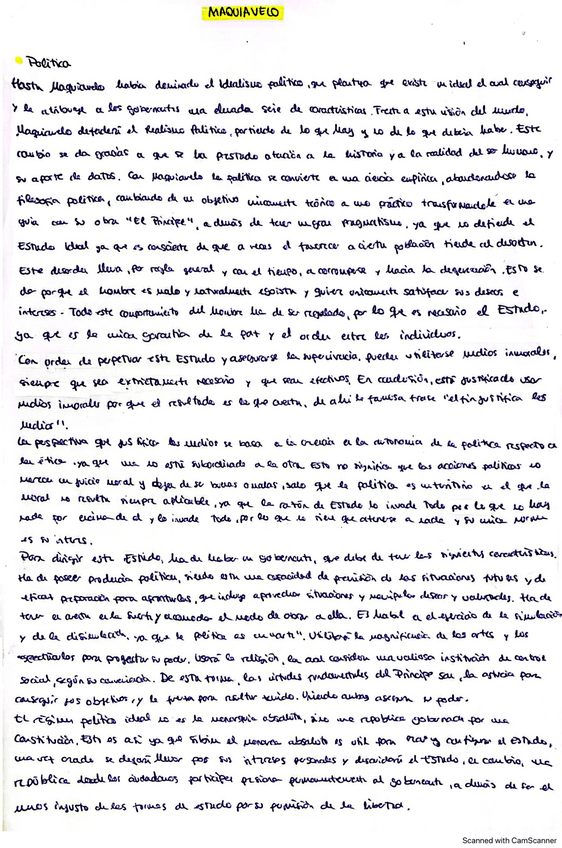 MAQUIAVELO
Política
Hasta Maquiavelo había dominado el Idealismo político, que plantea que existe un ideal el cual conseguir
y le atribuye a los gobernantes una elevada serie de características. Frente a esta visión del mundo,
Maquiavelo defenderá el Realismo Político, partiendo de lo que hay y no de lo que debería haber. Este
cambio se da gracias a que se ha prestado atención a la historia y a la realidad del ser humano, y
su aporte de datos. Con Maquiavelo la política se convierte en una ciencia empírica, abandonándose la
filosofía política, cambiando de un objetivo únicamente teórico a uno práctico transformándole en una
guía con su obra "El Príncipe", además de tener un gran pragmatismo, ya que no defiende el
Estado Ideal ya que es consciente de que a veces el favorecer a cierta población tiende al desorden.
Este desorden lleva, por regla general y con el tiempo, a corromperse y hacia la degeneración. Esto se
da porque el hombre es malo y naturalmente egoísta y quiere únicamente satisfacer sus deseos e
intereses. Todo este comportamiento del hombre ha de ser regulado, por lo que es necesario el Estado,
ya que es la única garantía de la paz y el orden entre los individuos.
Con orden de perpetuar este Estado y asegurarse la supervivencia, pueden utilizarse medios inmorales,
siempre que sea estrictamente necesario y que sean efectivos. En conclusión, está justificado usar
medios inmorales porque el resultado es lo que cuenta, de ahí la famosa frase "el fin justifica los
medios".
La perspectiva que justifica los medios se basa en la creencia en la autonomía de la política respecto a
la ética, ya que una no está subordinada a la otra. Esto no significa que las acciones políticas no
merezcan un juicio moral y dejen de ser buenas o malas, sólo que la política es un territorio en el que la
moral no resulta siempre aplicable, ya que la razón de Estado lo invade todo por lo que no hay
nada por encima de él y lo invade todo, por lo que no tiene que atenerse a nada y su única norma
es su interés.
Para dirigir este Estado, ha de haber un gobernante, que debe de tener las siguientes características.
Ha de poseer prudencia política, siendo esta una capacidad de previsión de las situaciones futuras y de
eficaz preparación para afrontarlas, que incluye aprovechar situaciones y manipular deseos y voluntades. Ha de
tener en cuenta la suerte y acomodar el modo de obrar a ella. Es hábil en el ejercicio de la simulación
y de la disimulación, ya que la política es un arte. Utilizará la magnificencia de las artes y los
espectáculos para proyectar su poder. Usará la religión, la cual considera una valiosa institución de control
social, según su conveniencia. De esta forma, las virtudes fundamentales del Príncipe son, la astucia para
conseguir sus objetivos, y la fuerza para resultar temido. Uniendo ambas asegura su poder.
El régimen político ideal no es la monarquía absoluta, sino una república gobernada por una
Constitución. Esto es así ya que si bien el monarca absoluto es útil para crear y configurar el Estado,
una vez creado se dejará llevar por sus intereses personales y descuidará el Estado, en cambio, una
república donde los ciudadanos participen presiona permanentemente al gobernante, además de ser el
menos injusto de las formas de estado por su promoción de la libertad.
Scanned with CamScanner